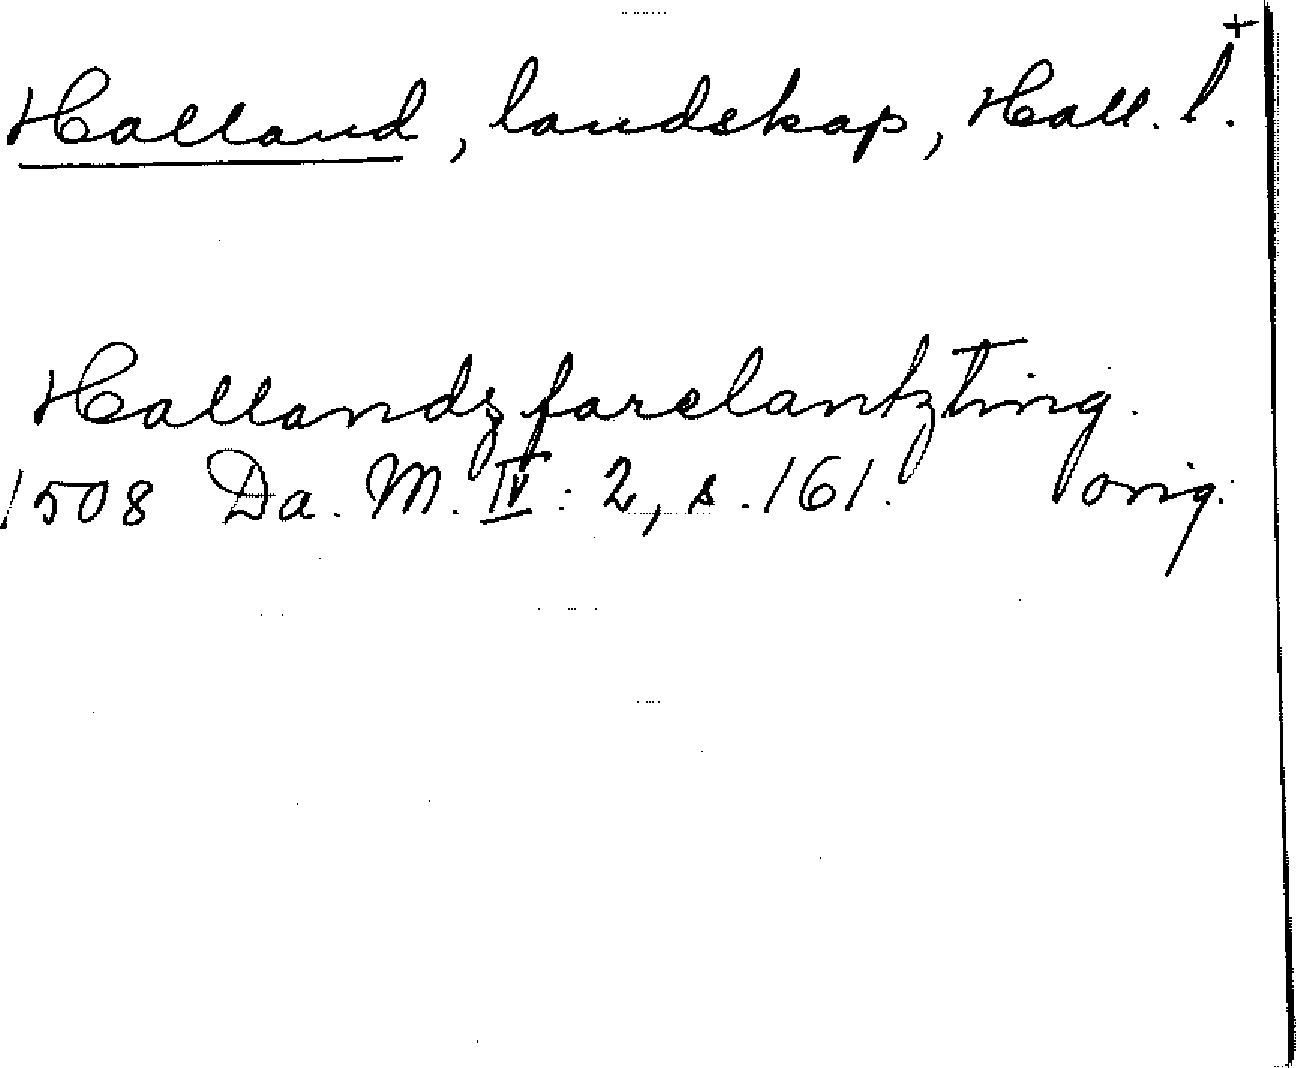 Halland, landskap, Hall. l.+
Hallandz farelantzting.
1508 Da. M. IV: 2, s. 161. orig.